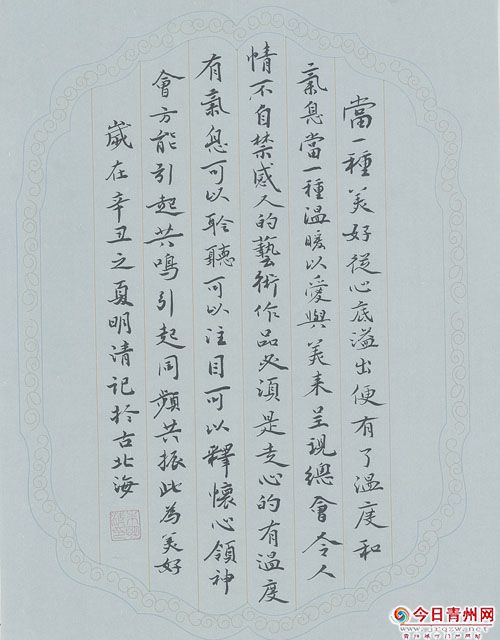 當一種美好從心底溢出便有了溫度和
氣息當一種溫暖以愛與美来呈現總會令人
情不自禁感人的藝術作品必須是走心的有溫度
有氣息可以聆聽可以注目可以釋懷心領神
會方能引起共鳴引起同頻共振此為美好
歲在辛丑之夏明清記於古北海
今日青州网
www.jrqzw.net